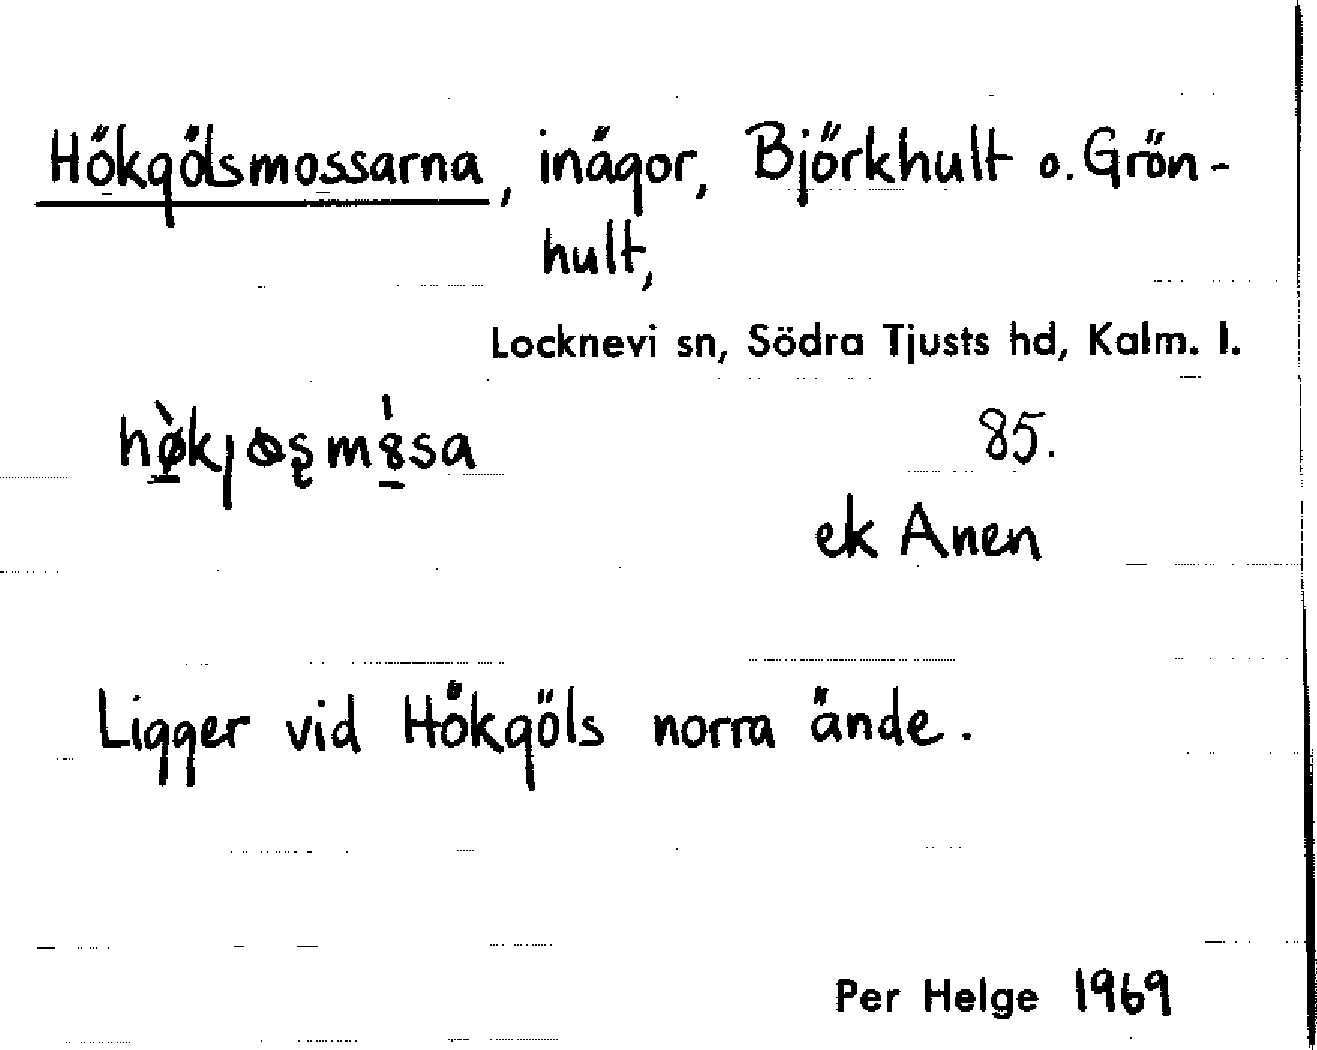 Hökgölsmossarna, inägor, Björkhult o. Grön-
hult,
Locknevi sn, Södra Tjusts hd, Kalm. l.
85.
ek Anen
Ligger vid Hökgöls norra ände.
Per Helge 1969